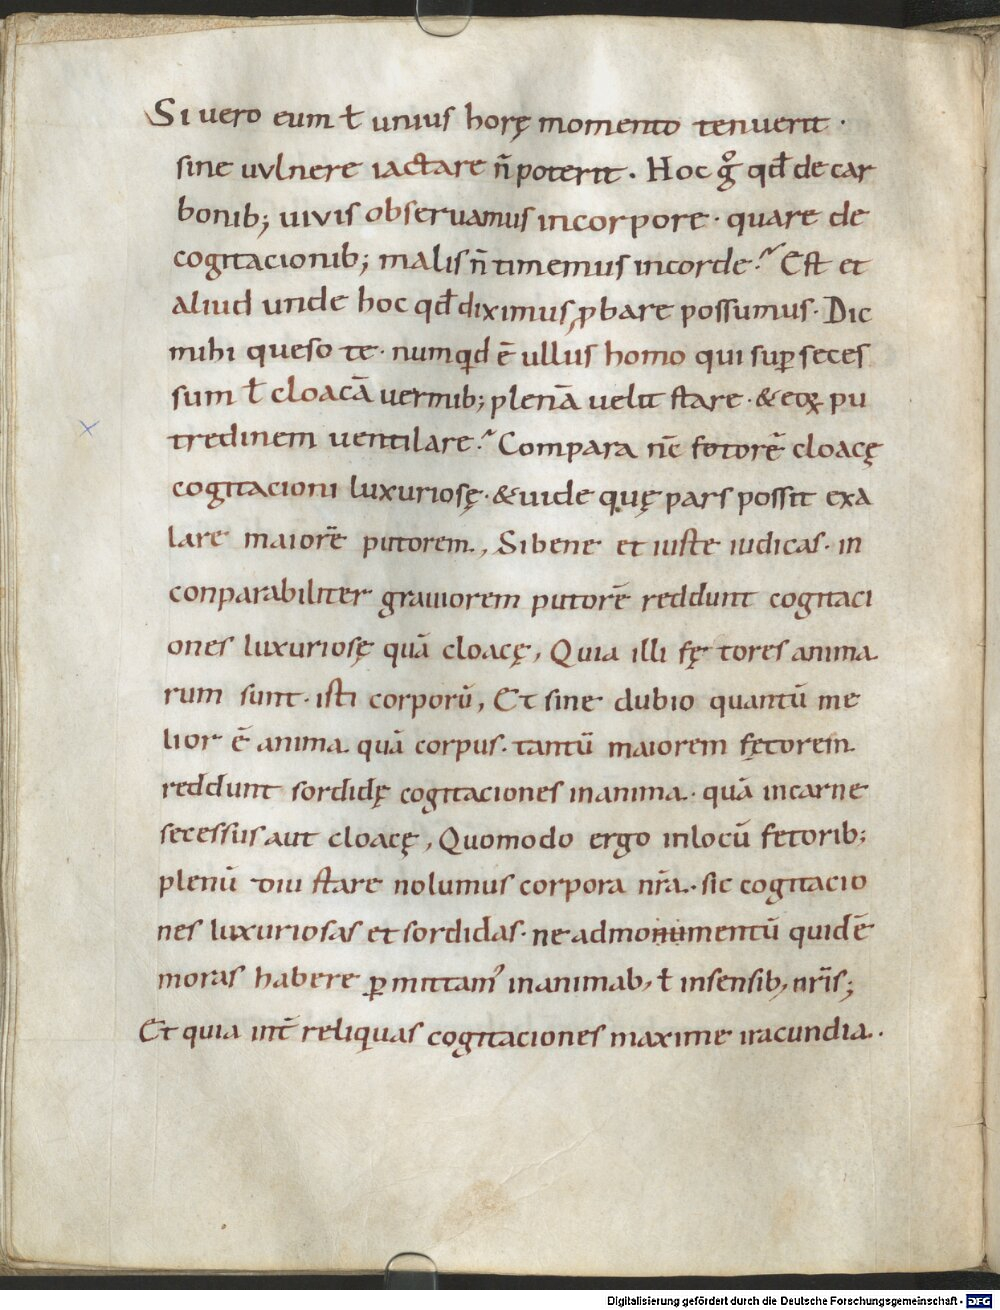 Si uero eum ł unius horę momento tenuerit ·
sine uulnere iactare n̄ poterit . Hoc gͦ qđ de car
bonib; uiuis obseruamus in corpore · quare de
cogitacionib; malis n̄ timemus in corde ? Est et
aliud unde hoc qđ diximus ꝓbare possumus · Dic
mihi queso te · numqđ ē ullus homo qui suꝑ seces
sum ł cloacā uermib; plenā uelit stare · & eoꝝ pu
tredinem uentilare ? Compara nc̄ fotorē cloacę
cogitacioni luxuriosę · & uide quę pars possit exa
lare maiorē putorem ., Si bene et iuste iudicas · in
conparabiliter grauiorem putorē reddunt cogitaci
ones luxuriosę quā cloacę , Quia illi fę tores anima
rum sunt · isti corporū , Et sine dubio quantū me
lior ē anima quā corpus · tantū maiorem fętorem
reddunt sordidę cogitaciones in anima · quā in carne
secessus aut cloacę , Quomodo ergo in locū fetorib;
plenū diu stare nolumus corpora nr̄a · sic cogitacio
nes luxuriosas et sordidas · ne ad monumentū quidē
moras habere ꝑmittam᾽ in animab, ł in sensib, nr̄is ;
Et quia int̄ reliquas cogitaciones maxime iracundia ·
Digitalisierung gefördert durch die Deutsche Forschungsgemeinschaft - DFG